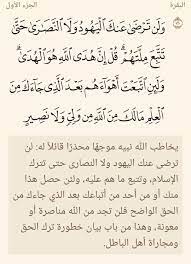 البقرة
الجزء الأول
وَلَن تَرْضَىٰ عَنكَ الْيَهُودُ وَلَا النَّصَارَىٰ حَتَّىٰ
تَتَّبِعَ مِلَّتَهُمْ ۗ قُلْ إِنَّ هُدَى اللَّهِ هُوَ الْهُدَىٰ ۗ
وَلَئِنِ اتَّبَعْتَ أَهْوَاءَهُم بَعْدَ الَّذِي جَاءَكَ مِنَ
الْعِلْمِ مَا لَكَ مِنَ اللَّهِ مِن وَلِيٍّ وَلَا نَصِيرٍ
يخاطب الله نبيه موجهًا محذرًا قائلًا له: لن
ترضى عنك اليهود ولا النصارى حتى تترك
الإسلام، وتتبع ما هم عليه، ولئن حصل هذا
منك أو من أحد من أتباعك بعد الذي جاءك من
الحق الواضح فلن تجد من الله مناصرة أو
معونة، وهذا من باب بيان خطورة ترك الحق
ومجاراة أهل الباطل.